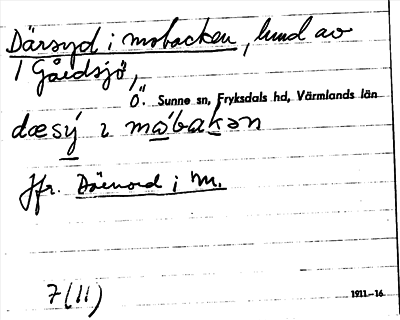 Därsyd i mobacken, lund av
1 Gårdsjö,
Ö. Sunne sn, Fryksdals hd, Värmlands län
dæsý ı mɷ́bakən
Jfr. Därnord i m.
7(11) 1911—16